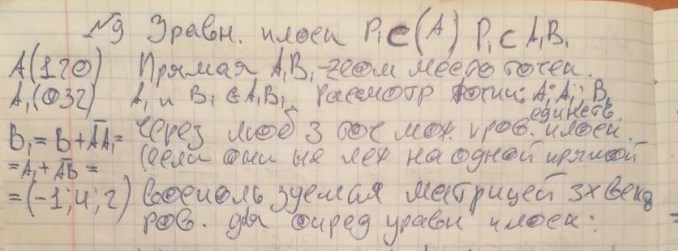 №9 Уравн. плоск P₁⊂(A) P₁⊂A₁B₁
A(1 2 0) Прямая A₁B₁ - геом место точек.
A₁(0 3 2) A₁ и B₁ ∈ A₁B₁. Рассмотр точки: A; A₁; B₁
единств.
B₁ = B + AA₁ = Через люб 3 точ мож. пров. плоск.
= A₁ + AB = (если они не леж на одной прямой
= (-1; 4; 2) Воспользуемся матрицей 3х век
ров. для опред уравн плоск: